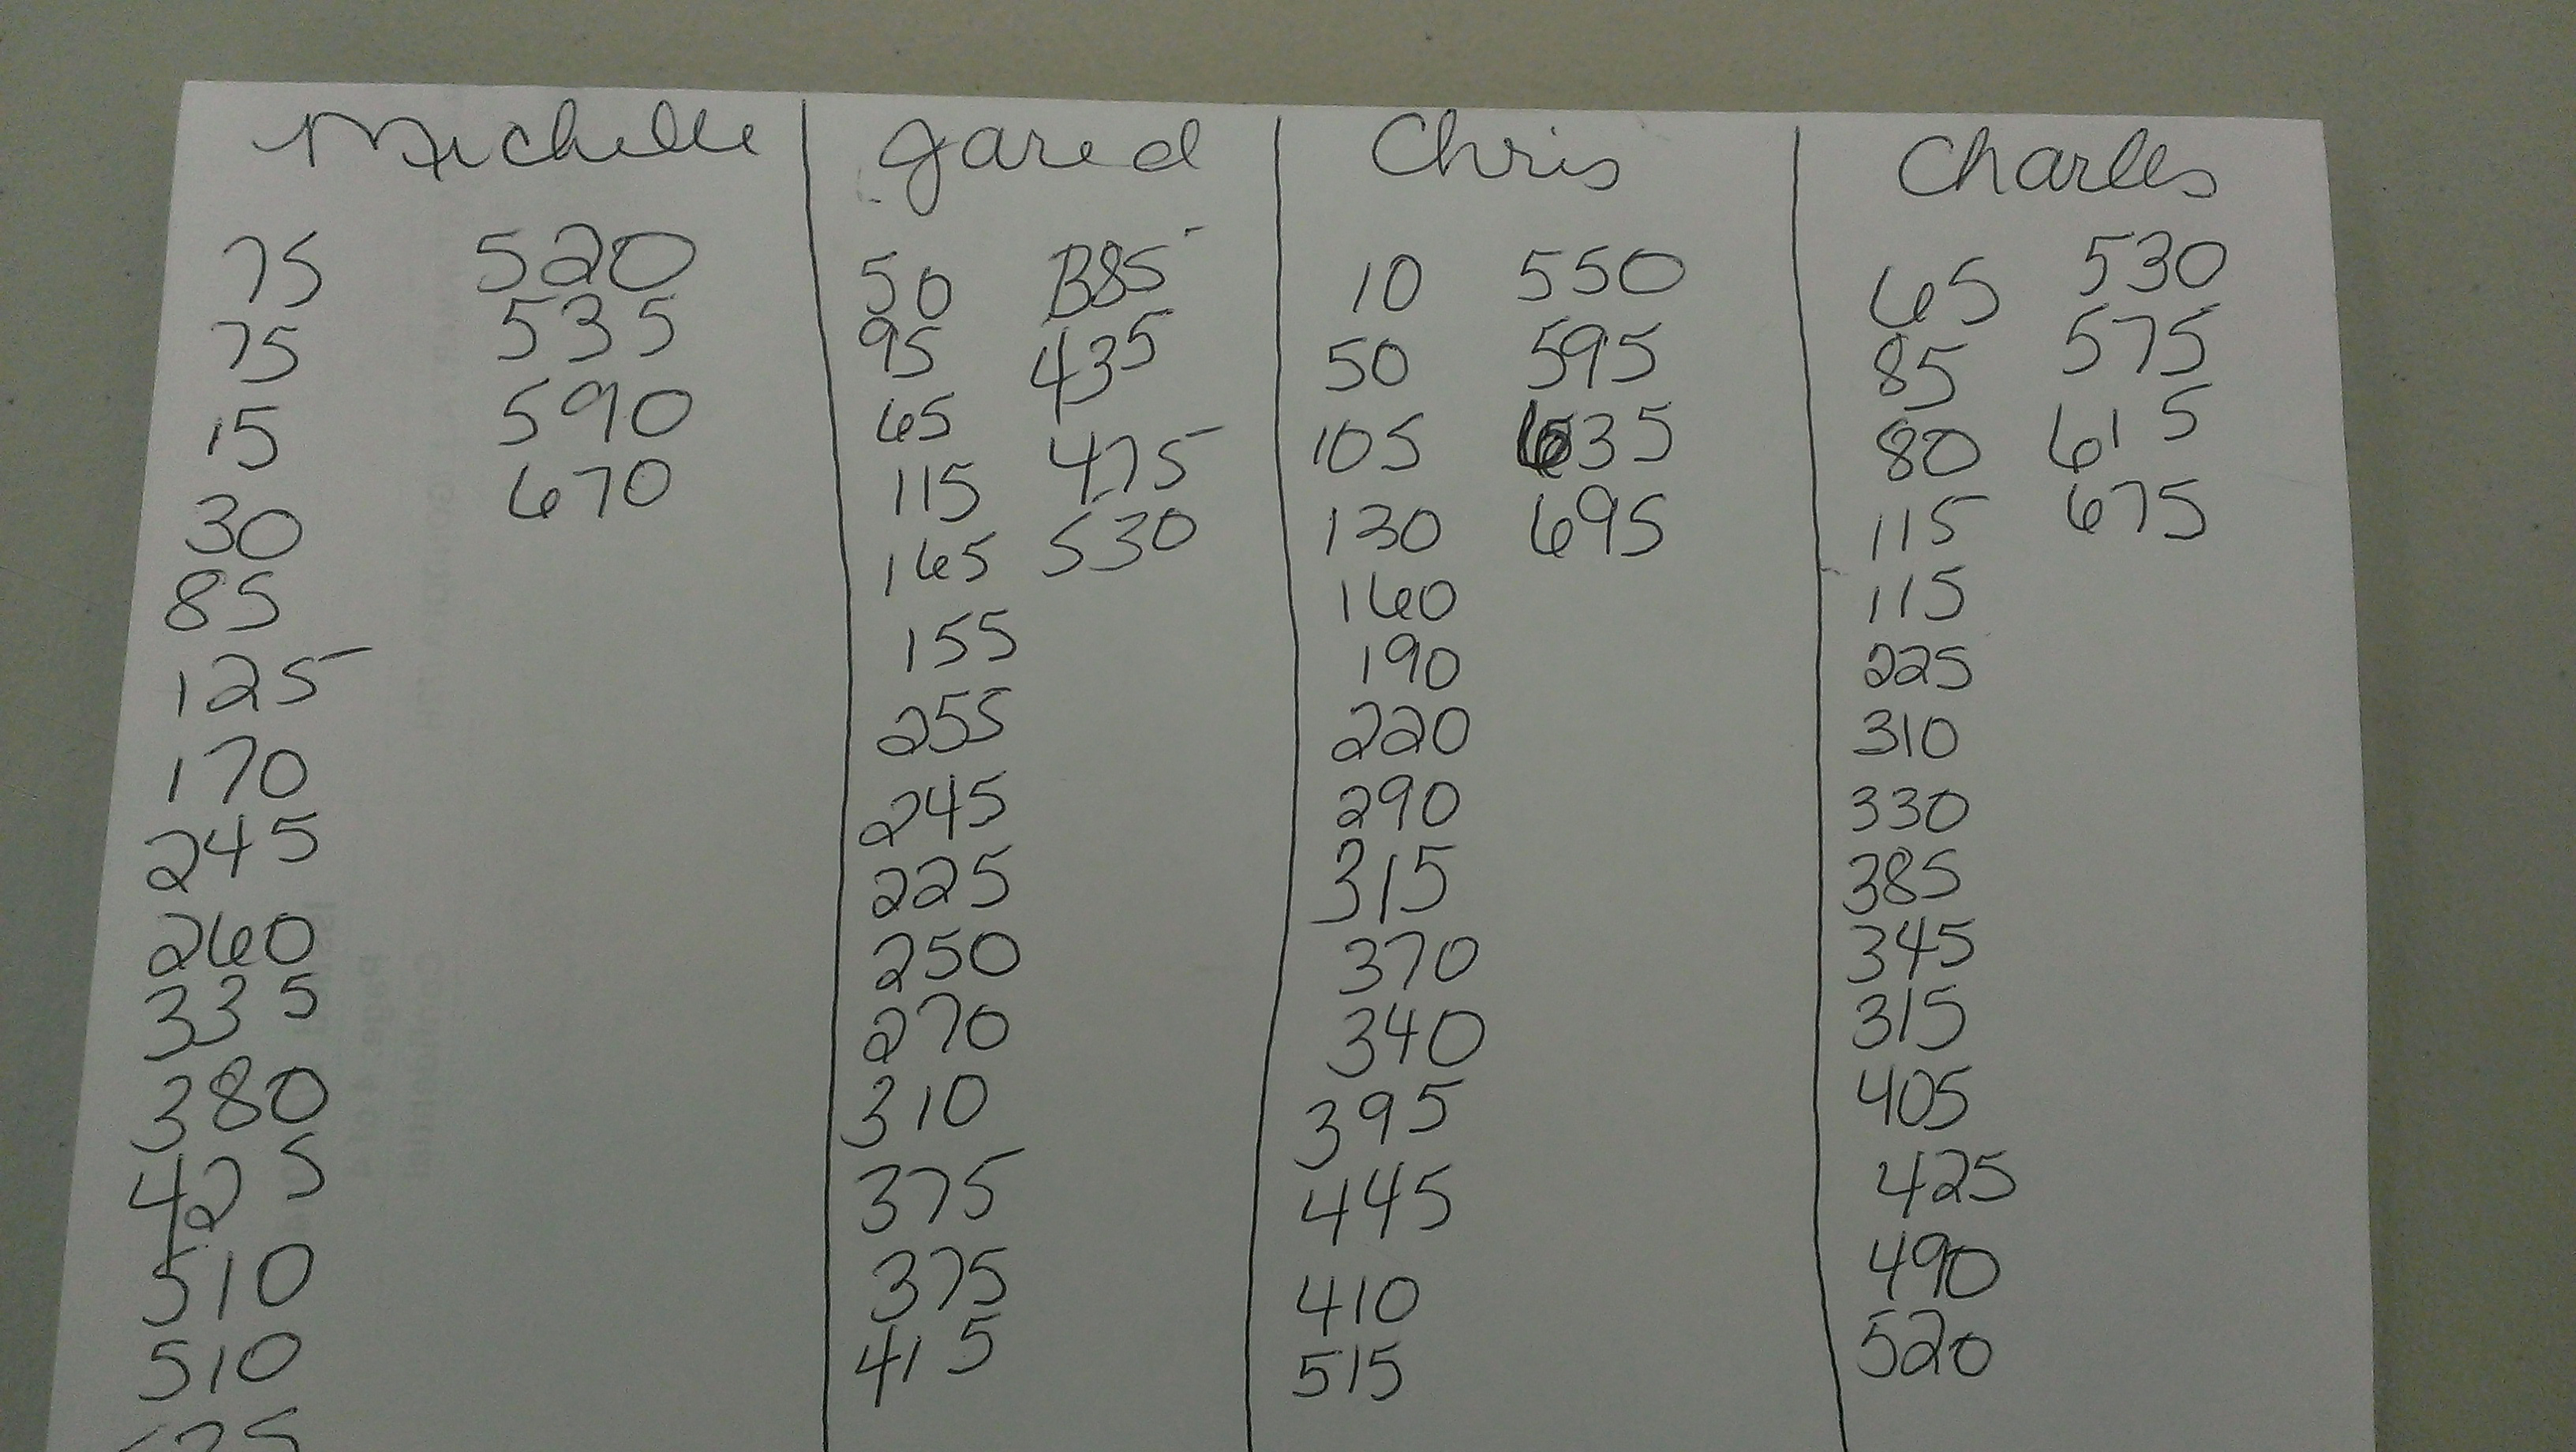 Michelle Jared Chris Charles
75 520 50 B85 10 550 65 530
75 535 95 435 50 595 85 575
15 590 65 475 105 635 80 615
30 670 115 530 130 695 115 675
85 165 160 115
125 155 190 225
170 255 220 310
245 245 290 330
260 225 315 385
335 250 370 345
380 270 340 315
425 310 395 405
510 375 445 425
510 375 410 490
415 515 520